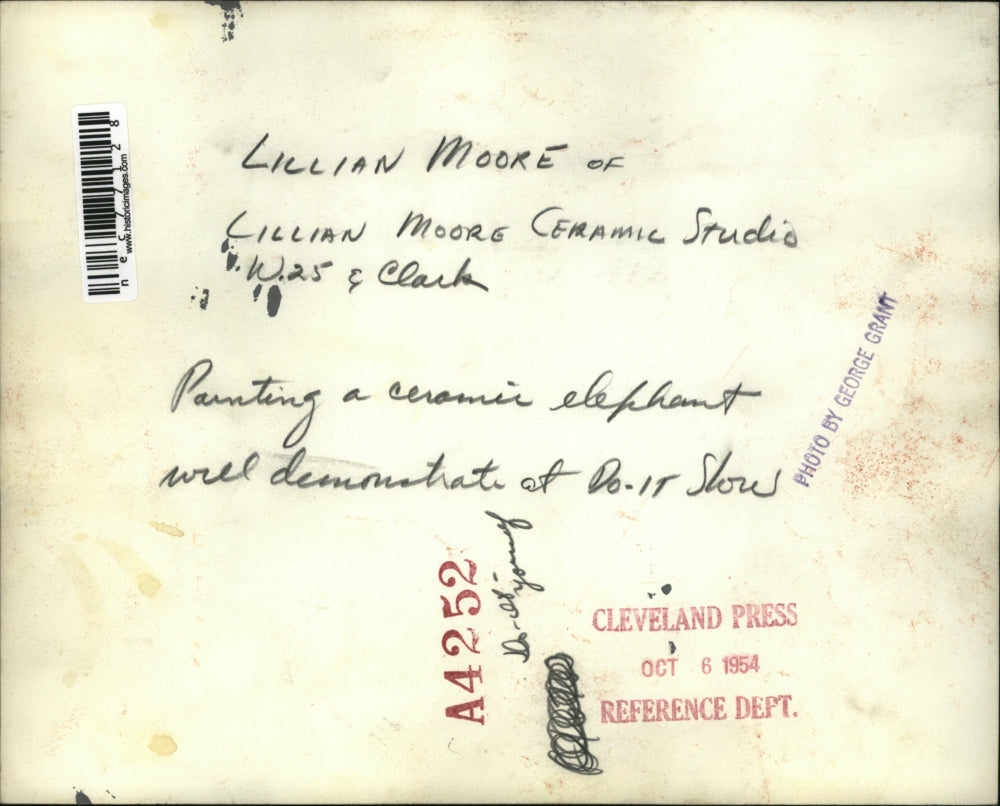 LILLIAN MOORE OF
LILLIAN MOORE CERAMIC Studio
W.25 & Clark
Painting a ceramic elephant
will demonstrate at Do-IT Show
PHOTO BY GEORGE GRANT
A4252
Do-it-young
CLEVELAND PRESS
OCT 6 1954
REFERENCE DEPT.
www.historicimages.com